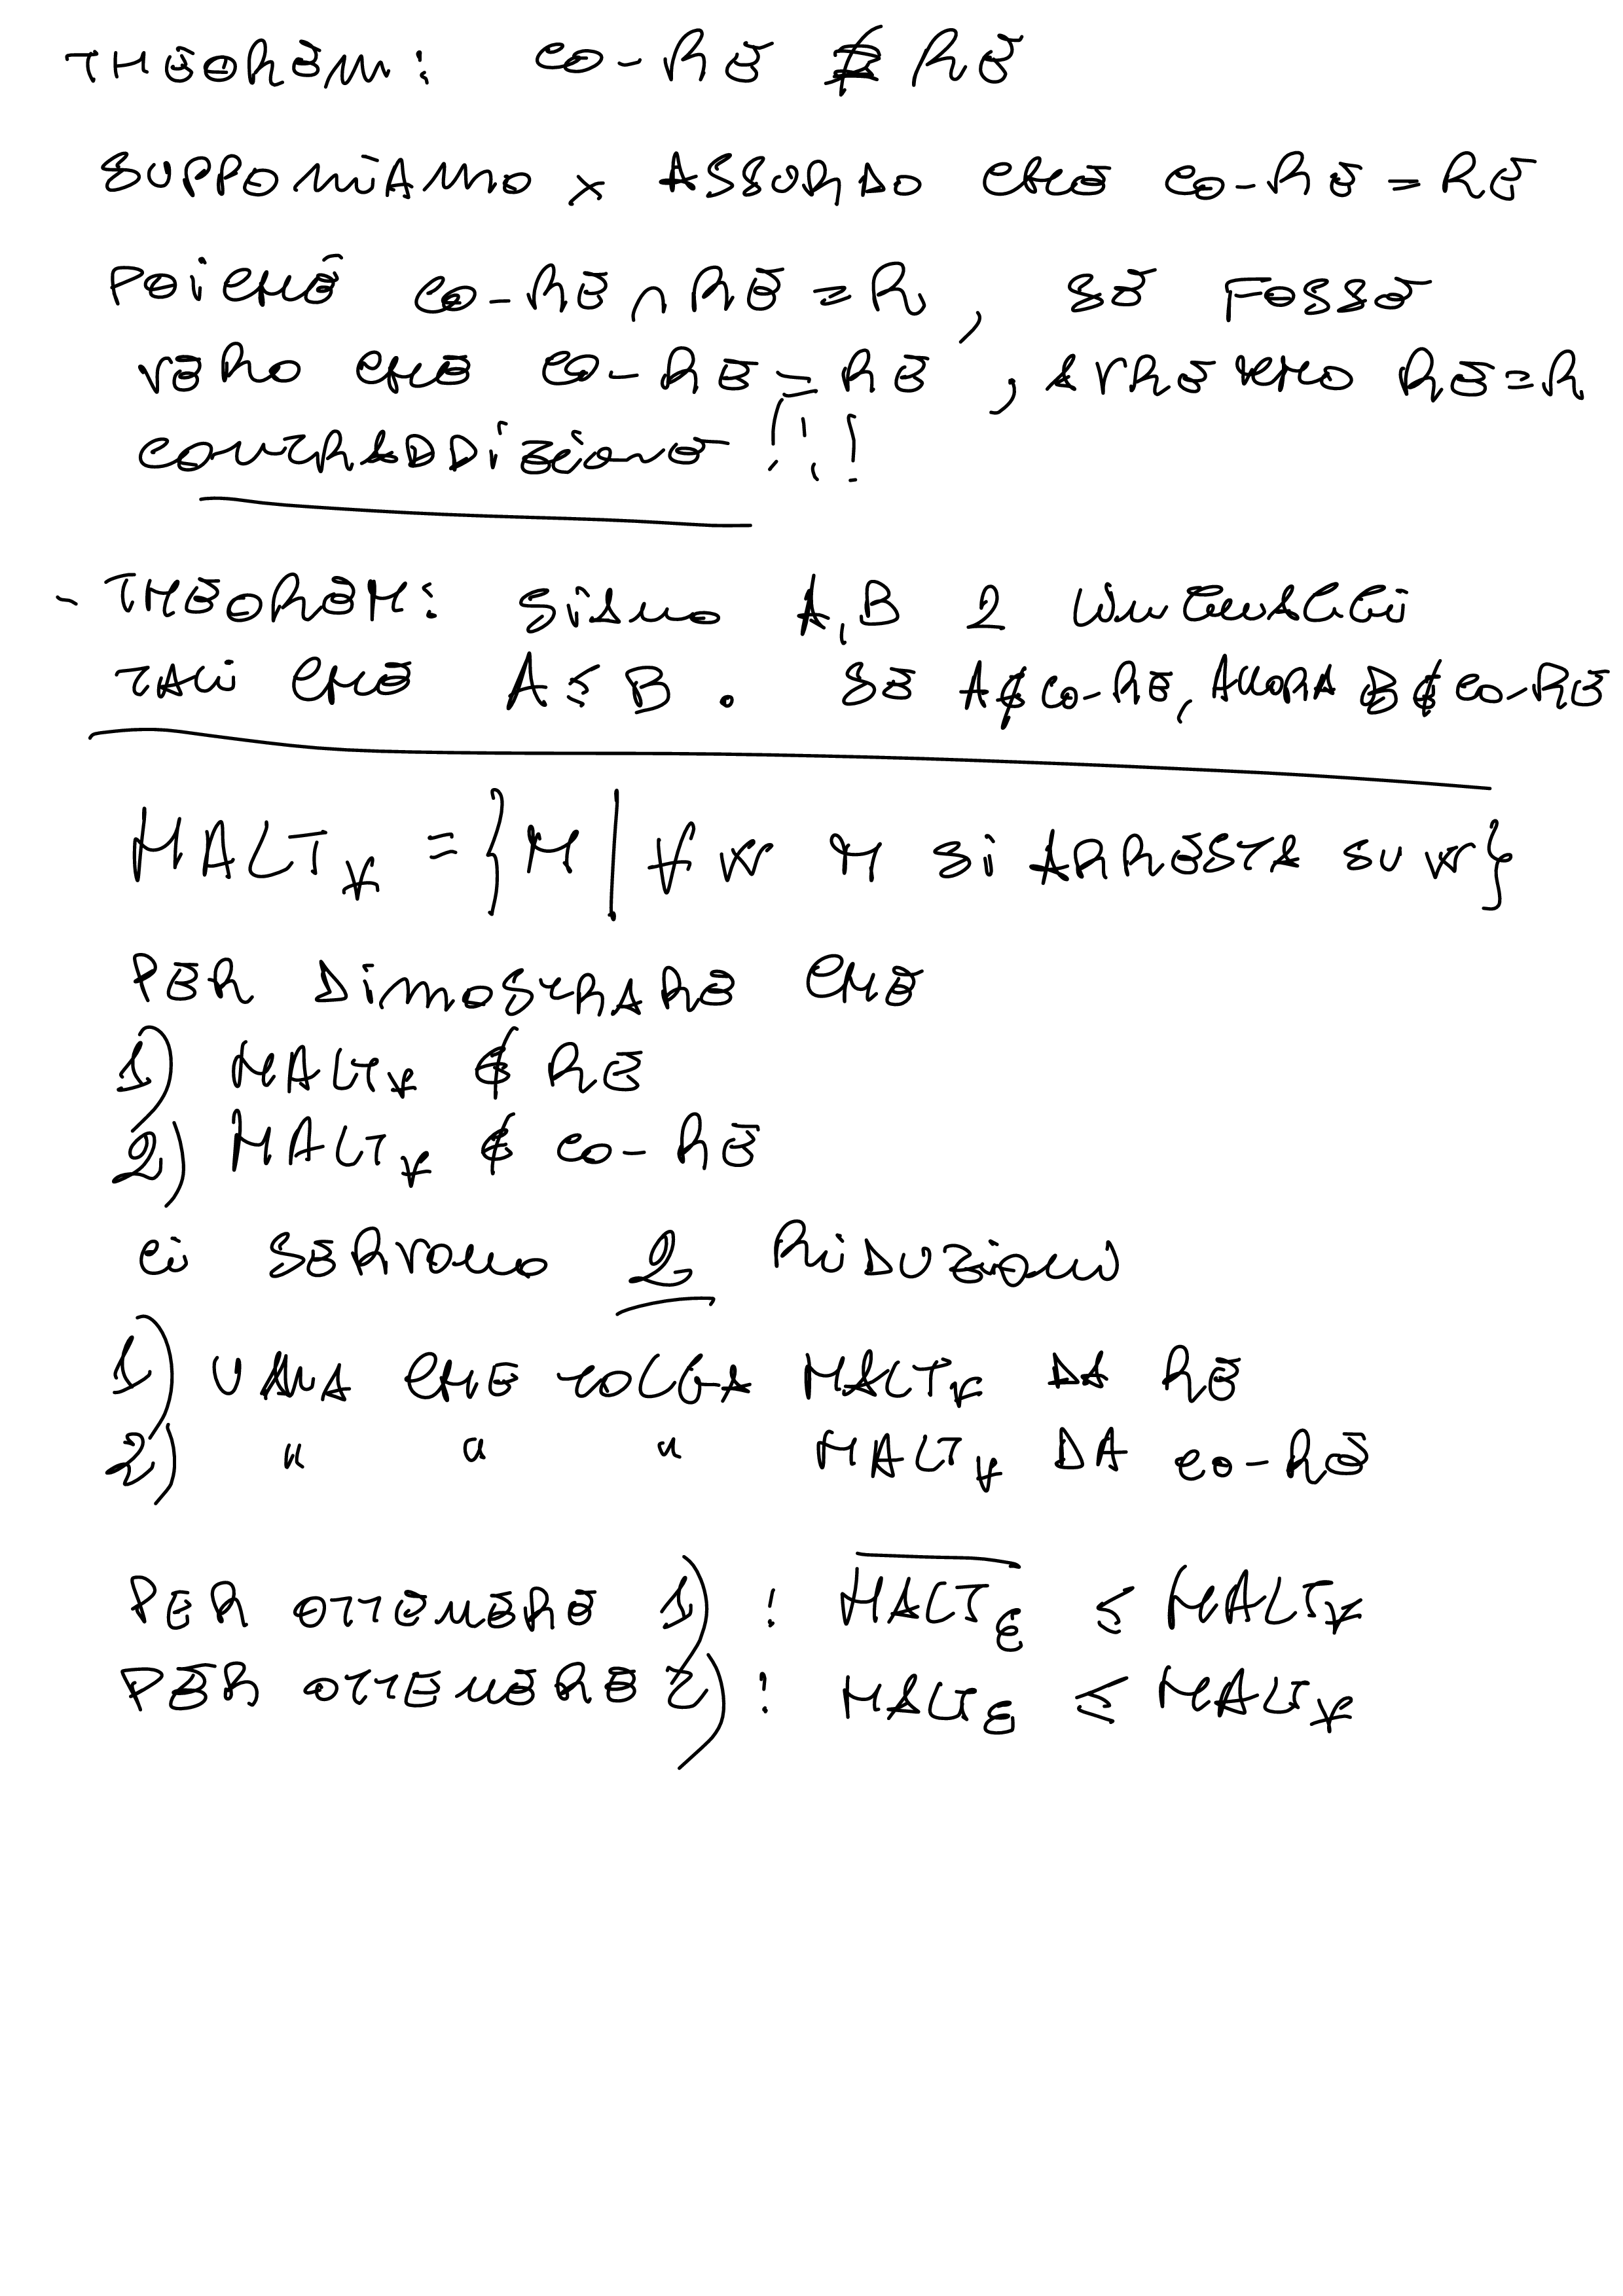 THEOREM: co-RE ≠ RE
SUPPONIAMO x ASSURDO CHE co-RE = RE
POICHÉ co-RE ∩ RE = R, SE FOSSE
VERO CHE co-RE = RE, AVREMMO RE = R
CONTRADDIZIONE !!!
- THEOREM: SIANO A, B 2 LINGUAGGI
TALI CHE A ≤ B. SE A ∉ co-RE, ALLORA B ∉ co-RE
HALT∀ = {M | ∀ w M SI ARRESTA SU w}
PER DIMOSTRARE CHE
1) HALT∀ ∉ RE
2) HALT∀ ∉ co-RE
CI SERVONO 2 RIDUZIONI
1) UNA CHE TOLGA HALT∀ DA RE
2) " " " HALT∀ DA co-RE
PER OTTENERE 1): \overline{HALTε} ≤ HALT∀
PER OTTENERE 2): HALTε ≤ HALT∀